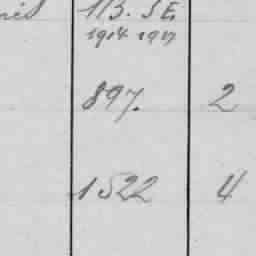 113. SE.
1914 1917
897. 2
1522 4